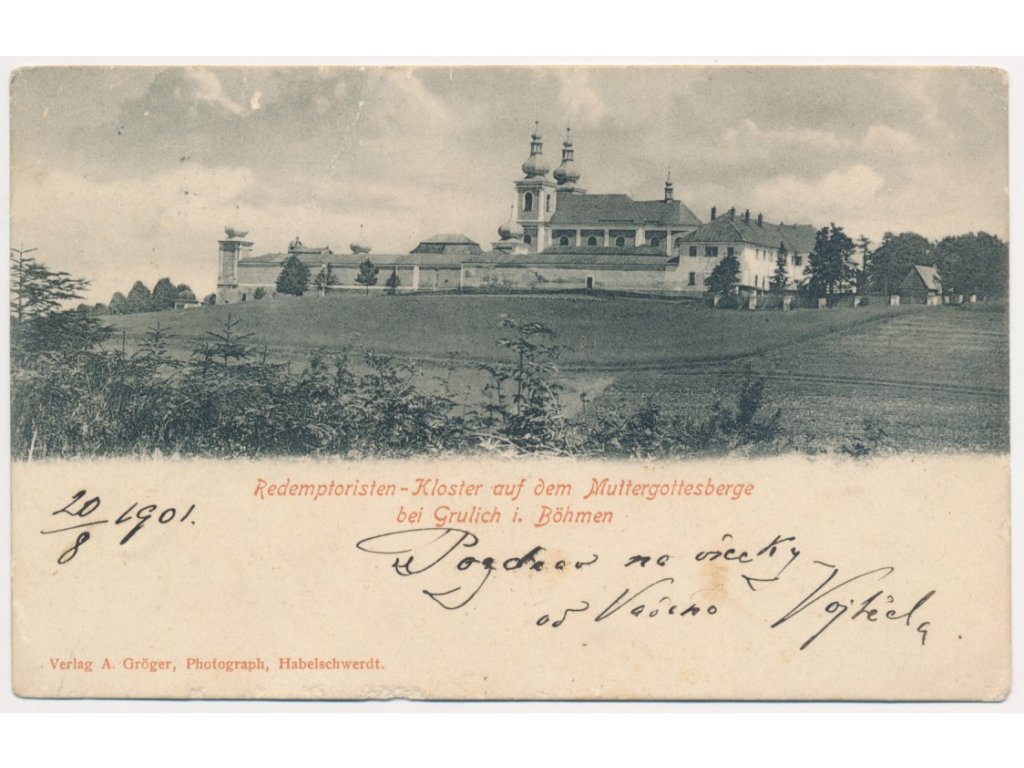 Redemptoristen-Kloster auf dem Muttergottesberge
bei Grulich i. Böhmen
20/8 1901.
Pozdrav na všecky
od Vašeho Vojtěcha.
Verlag A. Gröger, Photograph, Habelschwerdt.